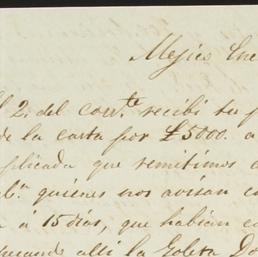 Mejico Ene
el 2. del corr.te recibi tu
de la carta por £5000. a
plicada que remitimos
quienes nos avisan
a 15 dias, que habian
allí la Goleta